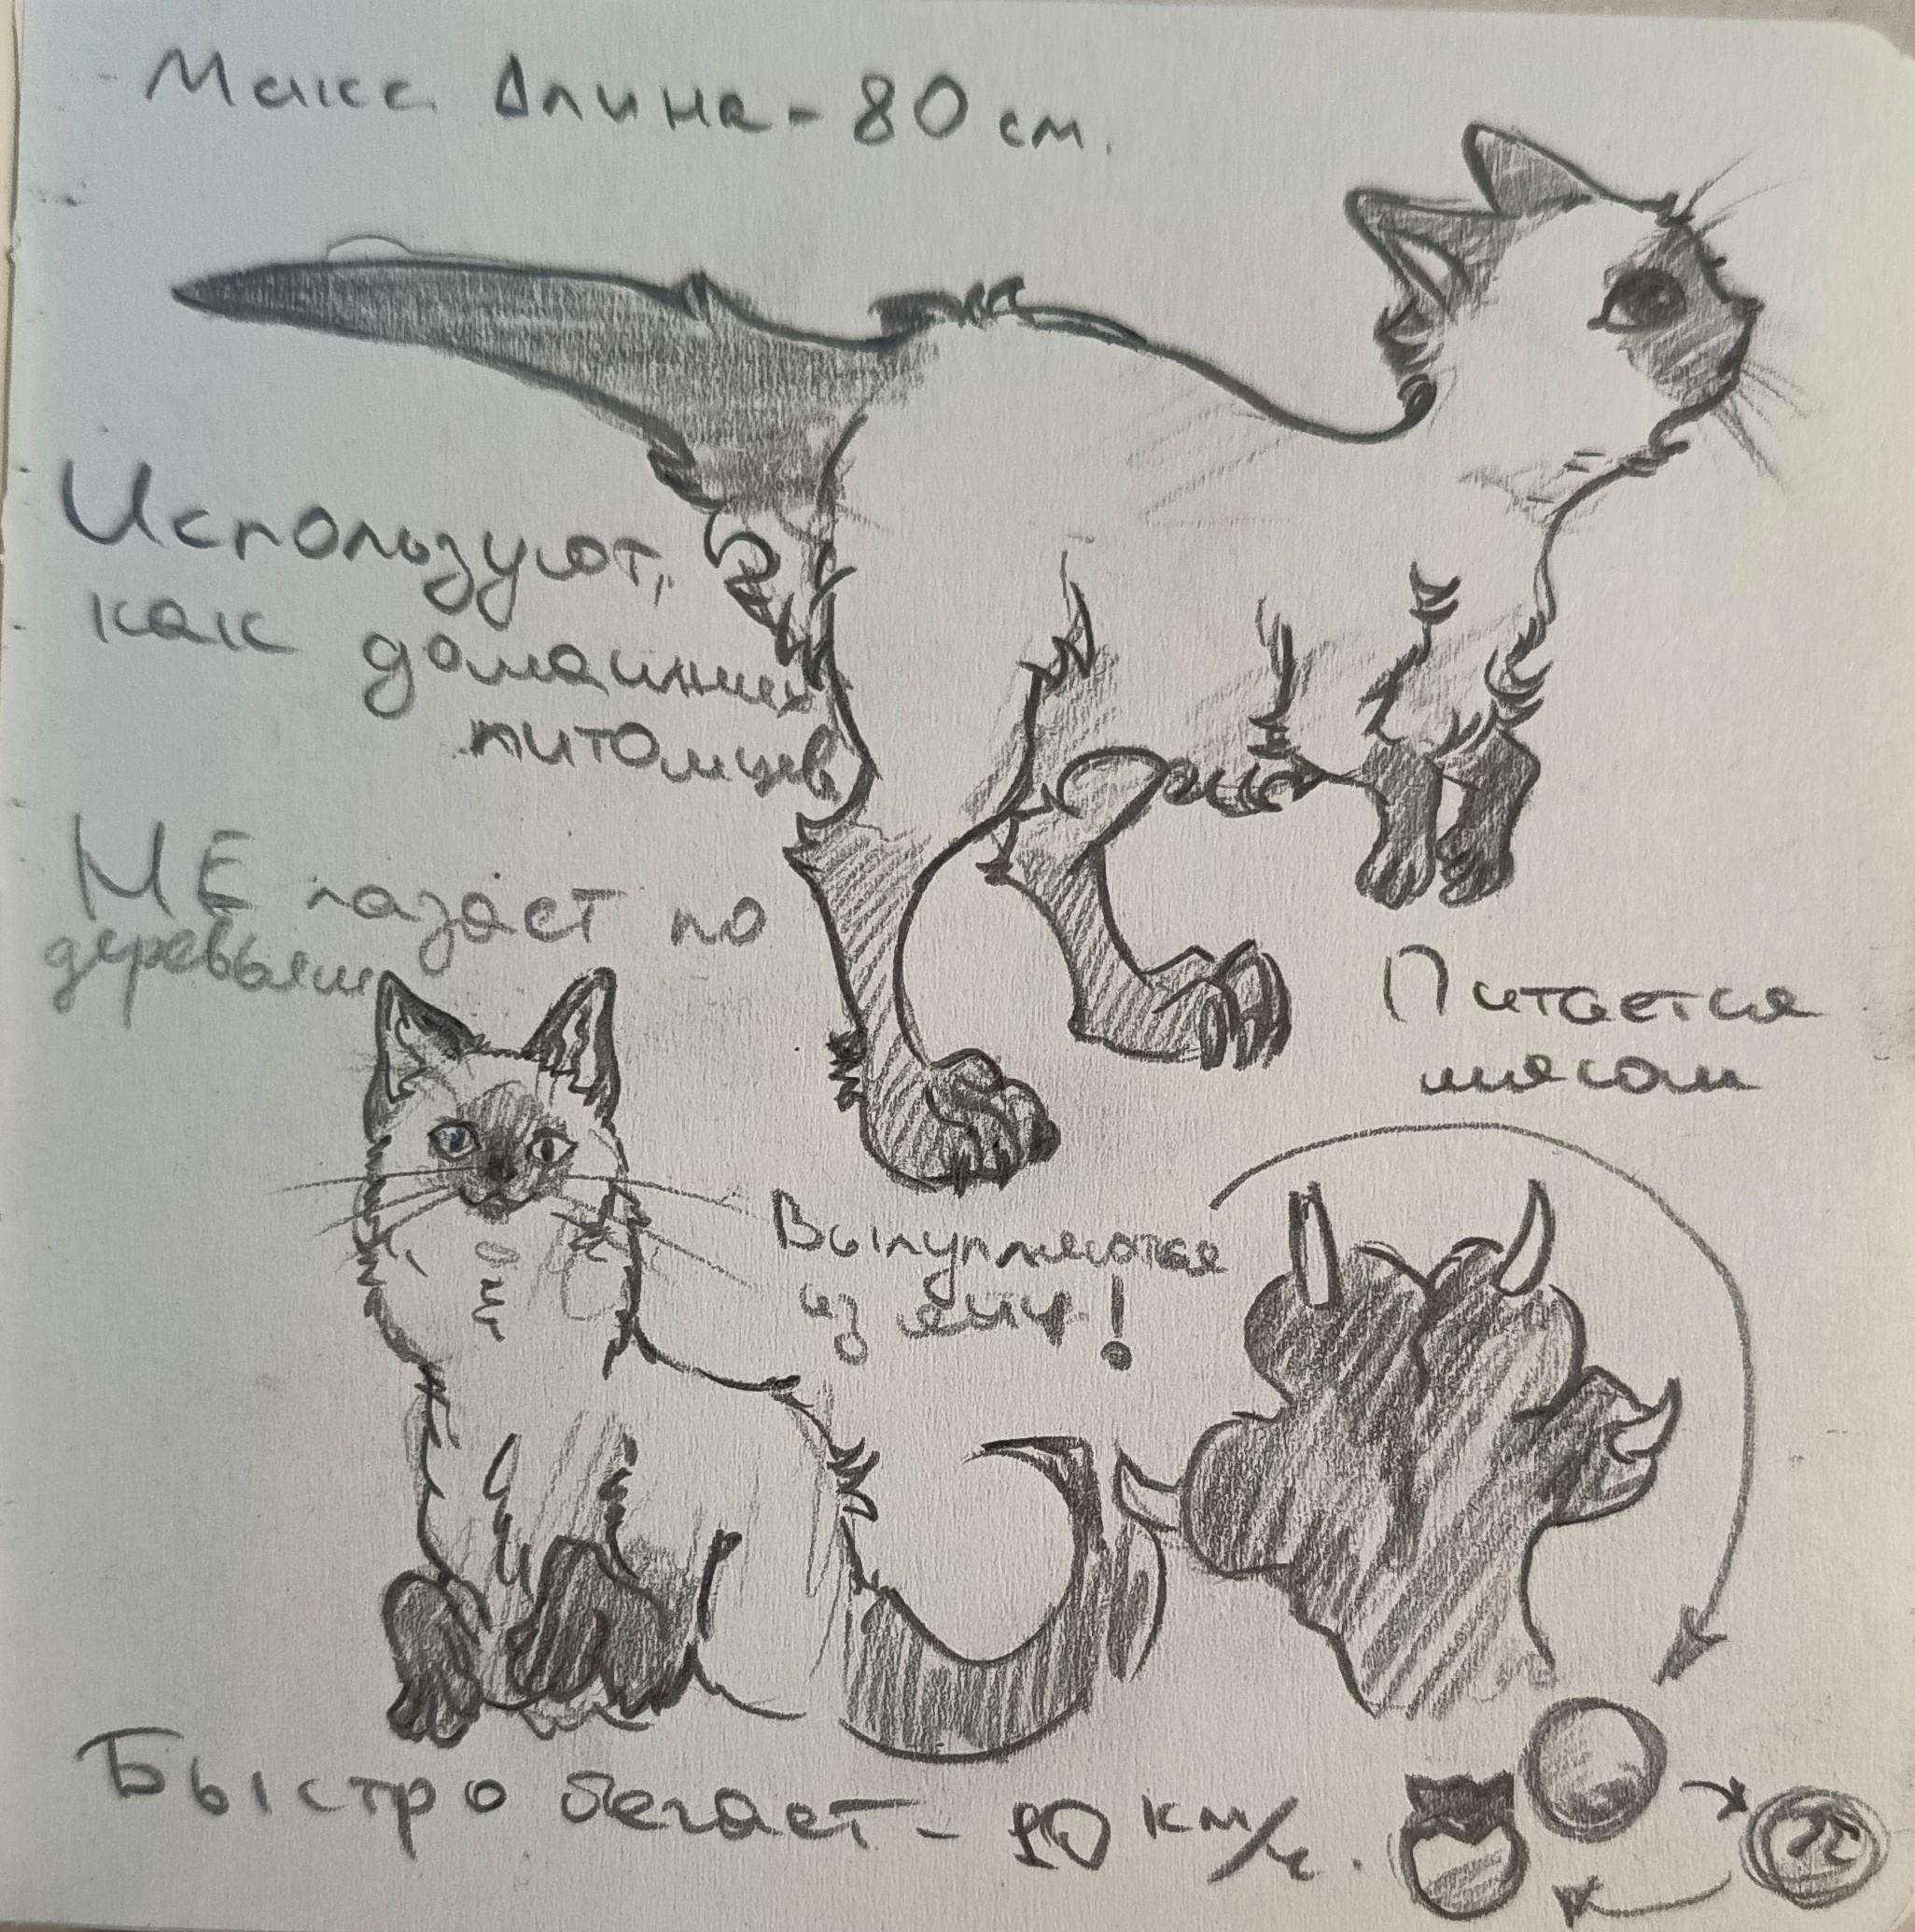 Макс Длина - 80 см.
Используют,
как домашних
питомцев
НЕ лазает по
деревьям
Питается
мясом
Вылупляются
из яиц!
Быстро бегает - 90 км/ч.